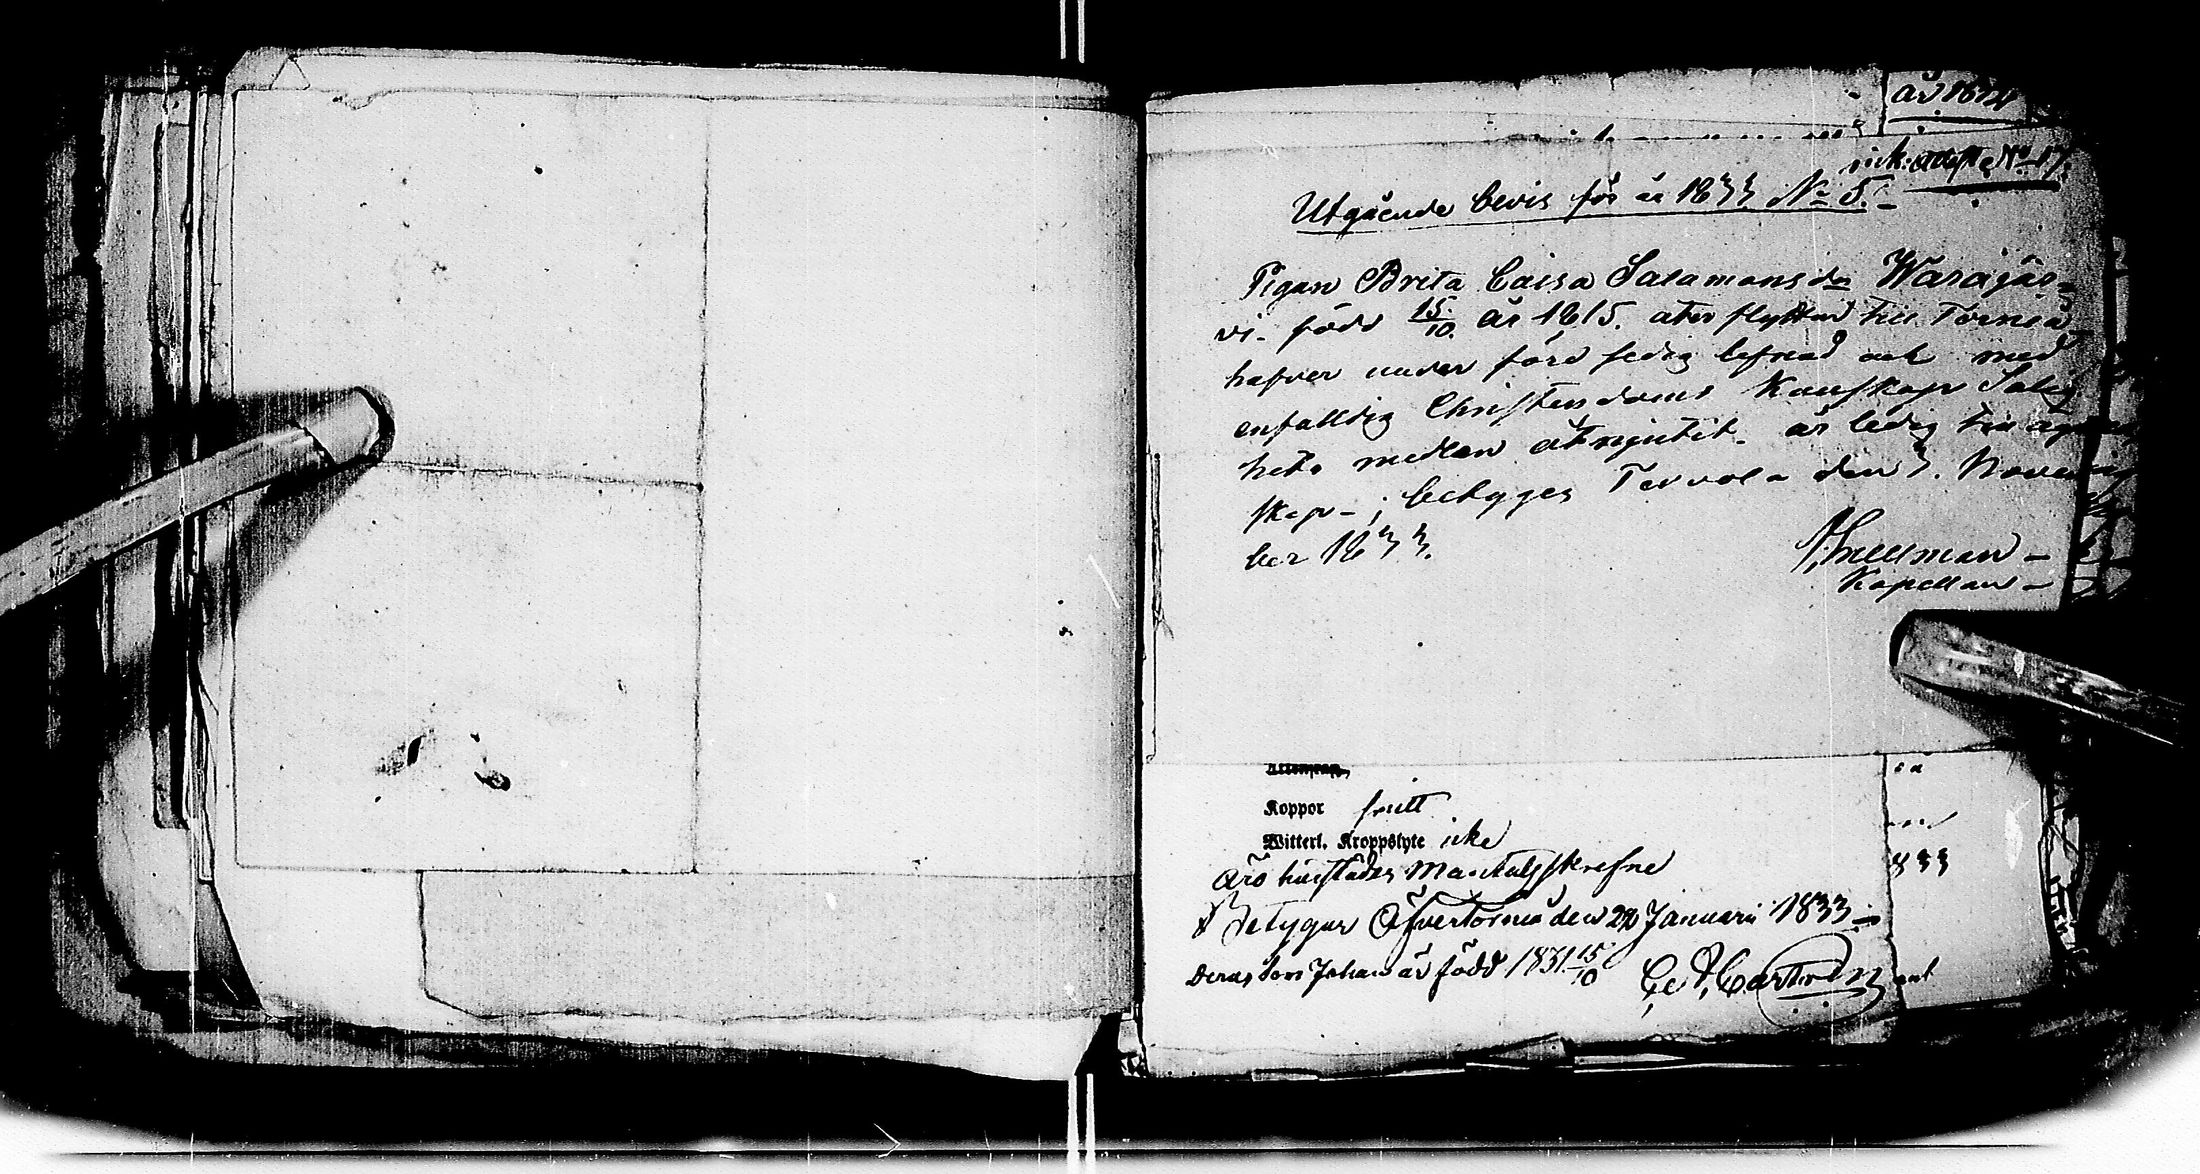 år 1834
ink: attest No 17.
Utgående bevis för år 1833 No 5.
Pigan Brita Caisa Salamonsdr Warajär-
vi. född 15/10. år 1815. åter flyttar till Torneå
hafver under förd sedig lefnad och med
enfalldig Christendoms Kunskap Salig
hets medlen åtnjutit. är ledig till ägten
skap-; betyges Tervola den 3. Novem
ber 1833.
Snellman
Kapellan
Koppor haft
Witterl. Kroppslyte icke
Äro härstädes Mantalsskrefne
Betygar Öfvertorneå den 22 Januari 1833
Deras son Johan är född 1831 15/10
833
ant